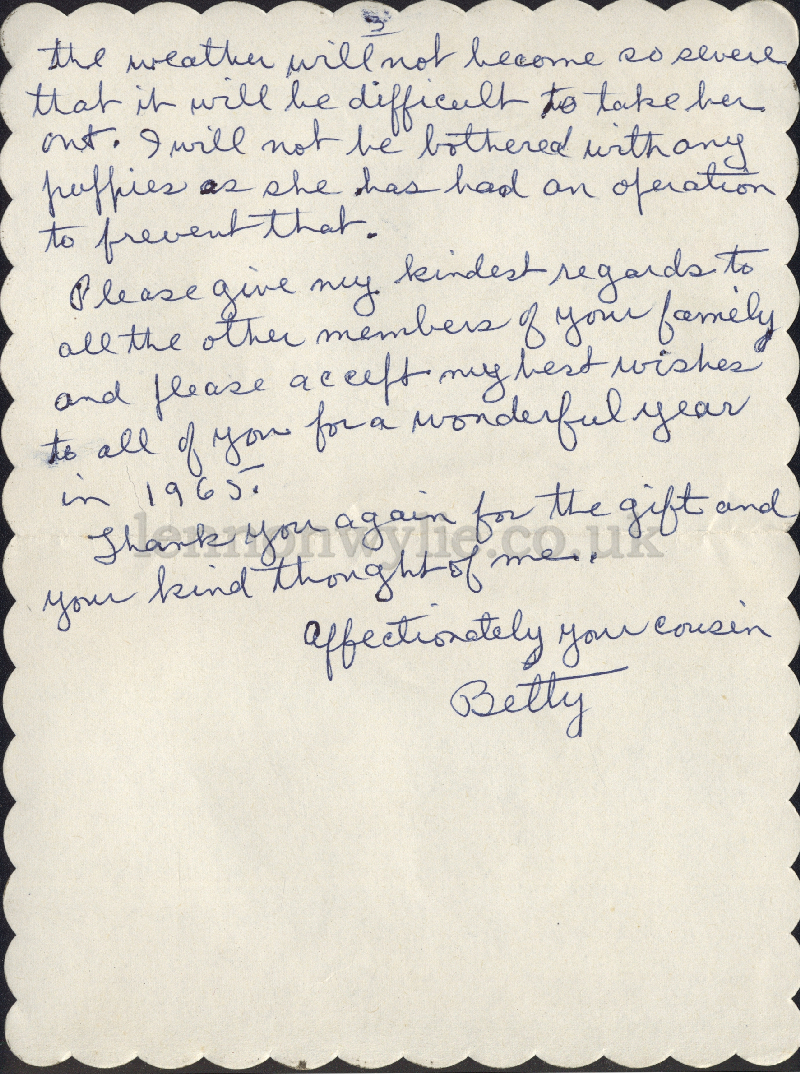 3
the weather will not become so severe
that it will be difficult to take her
out. I will not be bothered with any
puppies as she has had an operation
to prevent that.
Please give my kindest regards to
all the other members of your family
and please accept my best wishes
to all of you for a wonderful year
in 1965.
Thank you again for the gift and
lennonwylie.co.uk
your kind thought of me.
Affectionately your cousin
Betty